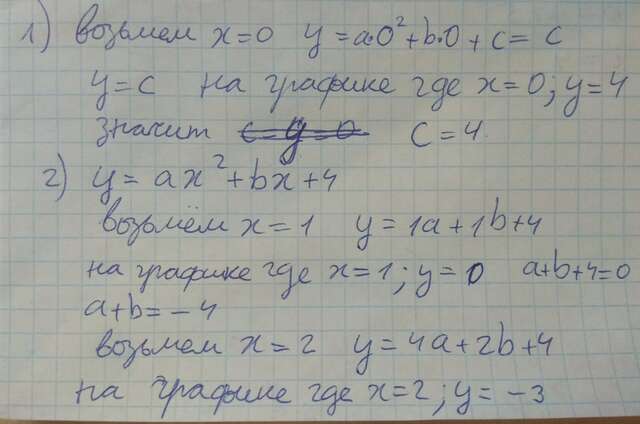 1) возьмем x=0 y=a·0²+b·0+c= c
y=c на графике где x=0; y=4
значит c=y=0 c=4
2) y= ax²+bx+4
возьмём x=1 y=1a+1b+4
на графике где x=1; y=0 a+b+4=0
a+b=-4
возьмем x=2 y=4a+2b+4
на графике где x=2; y=-3